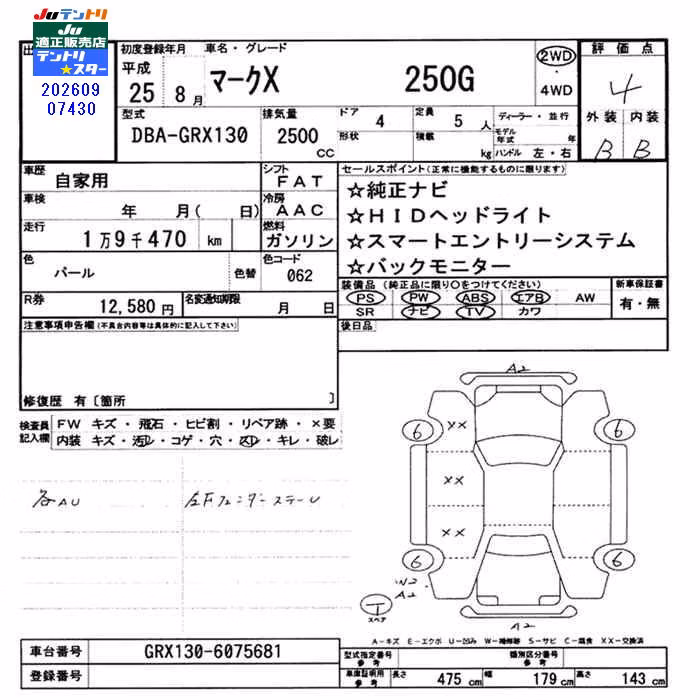 Juテントリ
Ju
適正販売店
テントリ
★スター
202609
07430
初度登録年月
車名・グレード
平成
25 8月
マークX 250G
2WD
・
4WD
評価点
4
外装 内装
B B
型式
DBA-GRX130
排気量
2500
CC
ドア 4
形状
定員 5 人
積載 kg
ディーラー・並行
モデル年式 年
ハンドル 左・右
車歴
自家用
シフト
FAT
車検
年 月( 日)
冷房
AAC
走行
1万9千470 km
燃料
ガソリン
色
パール
色替
色コード
062
R券
12,580円
名変通知期限
月 日
セールスポイント(正常に機能するものに限ります)
☆純正ナビ
☆HIDヘッドライト
☆スマートエントリーシステム
☆バックモニター
装備品(純正品に限り○をつけてください)
PS PW ABS エアB AW
SR ナビ TV カワ
新車保証書
有・無
後日品
注意事項申告欄(不具合内容等は具体的に記入して下さい)
修復歴 有〔箇所 〕
検査員
記入欄
FW キズ・飛石・ヒビ割・リペア跡・×要
内装 キズ・汚レ・コゲ・穴・スレ・キレ・破レ
各AU
左Fフェンダーステー U
A2
6 6
××
××
××
6 6
W2
A2
T
スペア
A2
A-キズ E-エクボ U-凹み W-補修跡 S-サビ C-腐食 XX-交換済
車台番号 GRX130-6075681
登録番号
型式指定番号
参考
類別区分番号
参考
車庫証明用
参考
長さ 475 cm 幅 179 cm 高さ 143 cm